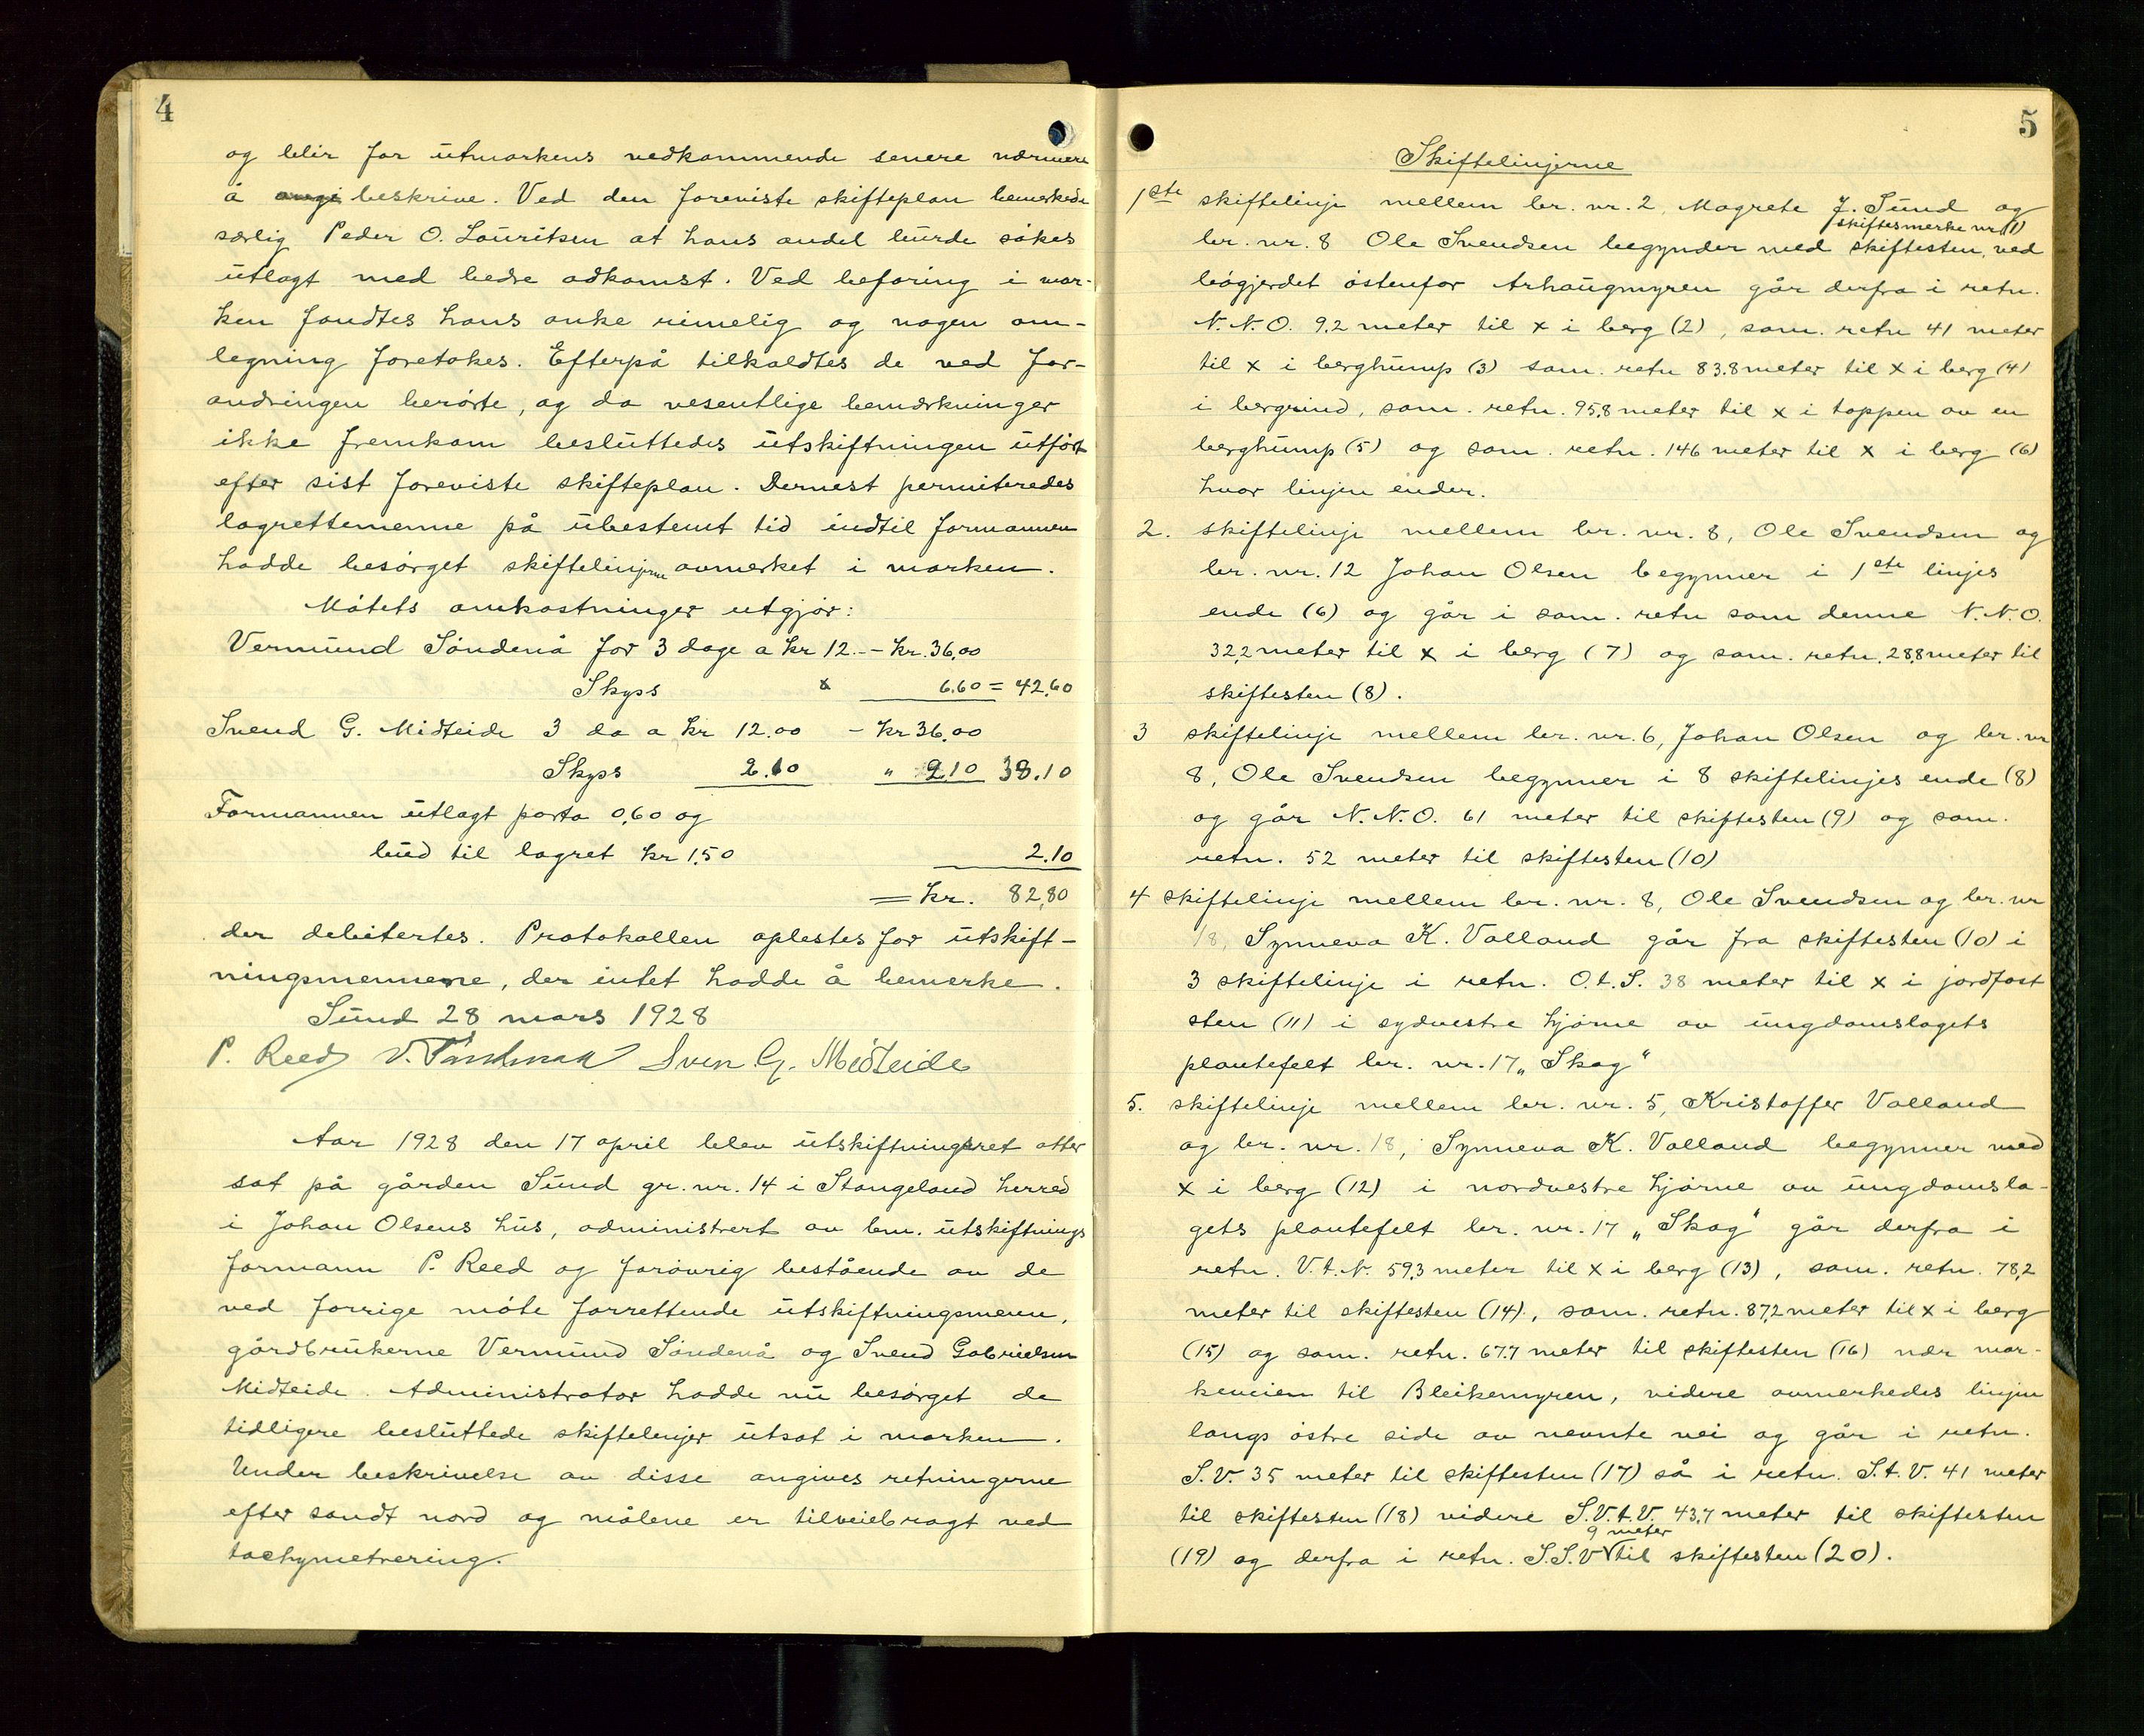 4
og blir for utmarkens vedkommende senere nærmere
å angi beskrive. Ved den foreviste skifteplan bemerkede
særlig Peder O. Lauritsen at hans andel burde søkes
utlagt med bedre adkomst. Ved befaring i mar-
ken fandtes hans anke rimelig og nogen om-
legning foretokes. Efterpå tilkaldtes de ved for-
andringen berørte, og da vesentlige bemerkninger
ikke fremkom besluttedes utskiftningen utført
efter sist foreviste skifteplan. Dernest permiteredes
lagrettemenne på ubestemt tid indtil formannen
hadde besørget skiftelinjerne avmerket i marken.
Møtets omkostninger utgjør:
Vermund Søndenå for 3 dage a kr 12.- - kr. 36,00
Skyss 6.60 = 42,60
Svend G. Midteide 3 do a kr 12.00 - kr 36,00
Skyss 2.10 " 2.10 38.10
Formannen utlagt porto 0,60 og
bud til lagret kr 1,50 2.10
= kr. 82,80
der debitertes. Protokollen oplestes for utskift-
ningsmennene, der intet hadde å bemerke.
Sund 28 mars 1928
P. Reed V. Søndenaa Sven G. Midteide
Aar 1928 den 17 april blev utskiftningsret atter
sat på gården Sund gr. nr. 14 i Stangeland herred
i Johan Olsens hus, administrert av bm. utskiftnings
formann P. Reed og forøvrig bestående av de
ved forrige møte forrettende utskiftningsmenn,
gårdbrukerne Vermund Søndenå og Svend Gabrielsen
Midteide. Administrator hadde nu besørget de
tidligere besluttede skiftelinjer utsat i marken.
Under beskrivelse av disse angives retningerne
efter sandt nord og målene er tilveiebragt ved
tachymetrering.
5
Skiftelinjerne
1ste skiftelinje mellem br. nr. 2, Magrete J. Sund og
skiftesmerke nr (1)
br. nr. 8 Ole Svendsen begynder med skiftesten, ved
bøgjerdet østenfor Arhaugmyren går derfra i retn.
N.N.O. 9,2 meter til x i berg (2), sam. retn 41 meter
til x i berghump (3) sam. retn 83.8 meter til x i berg (4)
i bergrind, sam. retn. 95,8 meter til x i toppen av en
berghump (5) og sam. retn. 146 meter til x i berg (6)
hvor linjen ender.
2. skiftelinje mellem br. nr. 8, Ole Svendsen og
br. nr. 12 Johan Olsen begynner i 1ste linjes
ende (6) og går i sam. retn som denne N.N.O.
32,2 meter til x i berg (7) og sam. retn. 28,8 meter til
skiftesten (8).
3 skiftelinje mellem br. nr. 6, Johan Olsen og br. nr
8, Ole Svendsen begynner i 8 skiftelinjes ende (8)
og går N.N.O. 61 meter til skiftesten (9) og sam.
retn. 52 meter til skiftesten (10)
4 skiftelinje mellem br. nr. 8, Ole Svendsen og br. nr
18, Synneva K. Valland går fra skiftesten (10) i
3 skiftelinje i retn. O.t.S. 38 meter til x i jordfast
sten (11) i sydvestre hjørne av ungdomslagets
plantefelt br. nr. 17 „Skog"
5. skiftelinje mellem br. nr. 5, Kristoffer Valland
og br. nr. 18, Synneva K. Valland begynner med
x i berg (12) i nordvestre hjørne av ungdomsla-
gets plantefelt br. nr. 17 „Skog" går derfra i
retn. V.t.N. 59,3 meter til x i berg (13), sam. retn. 78,2
meter til skiftesten (14), sam. retn. 87,2 meter til x i berg
(15) og sam. retn. 67.7 meter til skiftesten (16) nær mar-
keveien til Bleikemyren, videre avmerkedes linjen
langs østre side av nevnte vei og går i retn.
S.V. 35 meter til skiftesten (17) så i retn. S.t.V. 41 meter
til skiftesten (18) videre S.V.t.V. 43,7 meter til skiftesten
9 meter
(19) og derfra i retn. S.S.V til skiftesten (20).